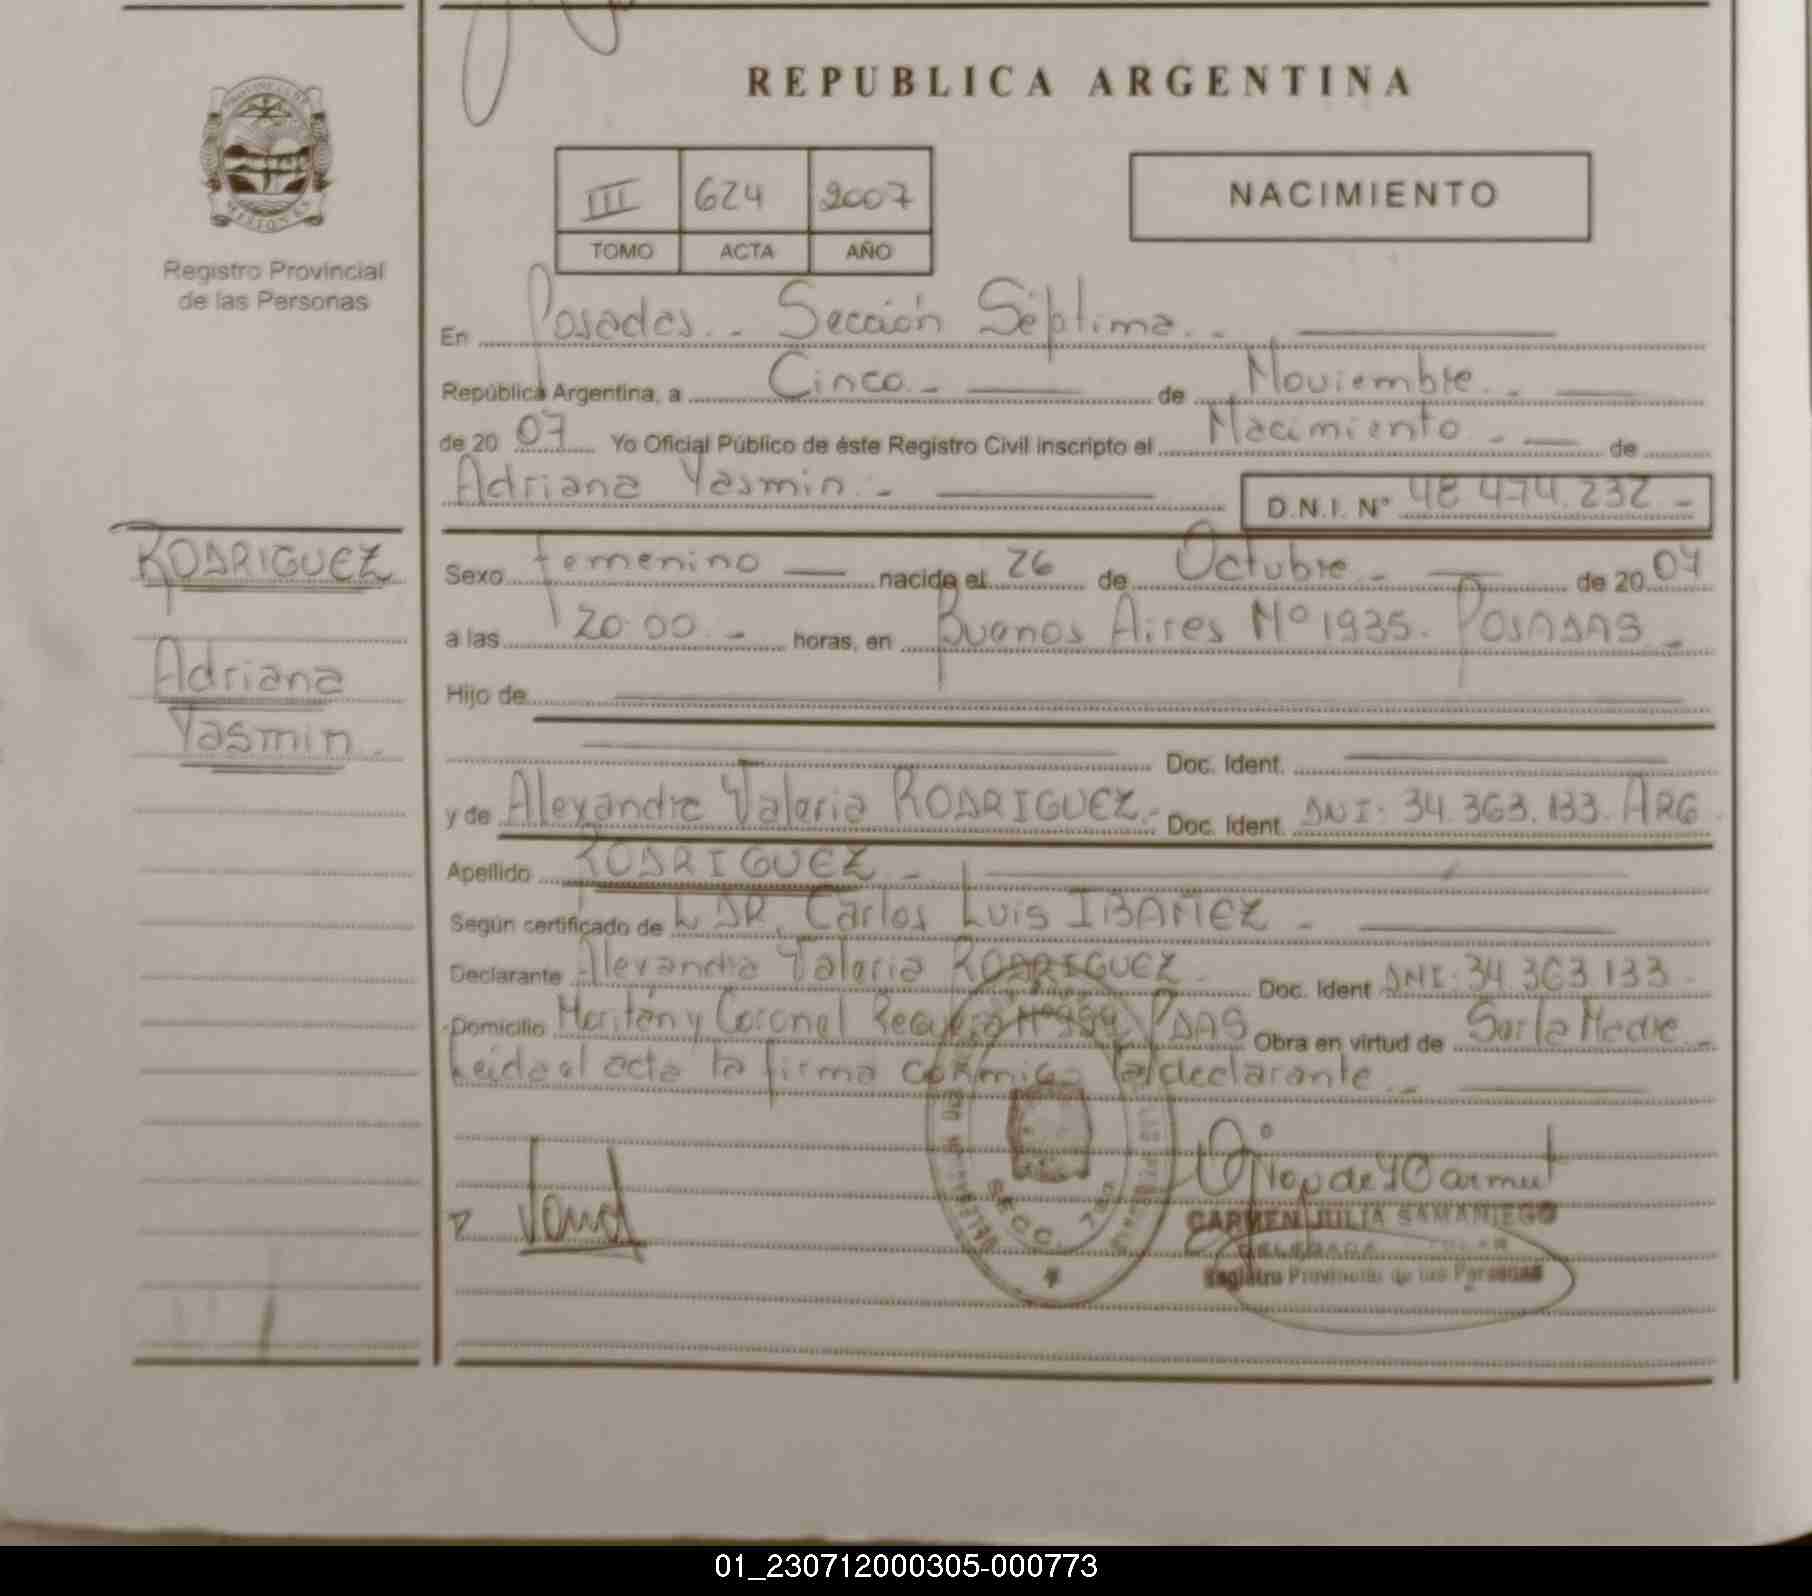 REPUBLICA ARGENTINA
III 624 2007
TOMO ACTA AÑO
NACIMIENTO
MISIONES
Registro Provincial
de las Personas
En Posadas.. - Sección Séptima. -
República Argentina, a Cinco. - de Noviembre. -
de 20 07 Yo Oficial Público de éste Registro Civil inscripto el Nacimiento. - de
Adriana Yasmin. - D.N.I. N° 48.474.232 -
RODRIGUEZ
Adriana
Yasmin.
Sexo femenino nacido el 26 de Octubre. - de 20 07
a las 20.00. - horas, en Buenos Aires Nº 1935. POSADAS -
Hijo de
Doc. Ident.
y de Alexandra Valeria RODRIGUEZ.- Doc. Ident. DNI: 34.363.133. ARG.
Apellido RODRIGUEZ -
Según certificado de DR. Carlos Luis IBAÑEZ -
Declarante Alexandra Valeria RODRIGUEZ Doc. Ident DNI: 34.363.133.
Domicilio y Coronel Nº PDAS Obra en virtud de Ser la Madre. -
Leída el acta la firma conmigo la declarante. -
SECC. 7
CARMEN JULIA SAMANIEGO
DELEGADA TITULAR
Registro Provincial de las Personas
01_230712000305-000773